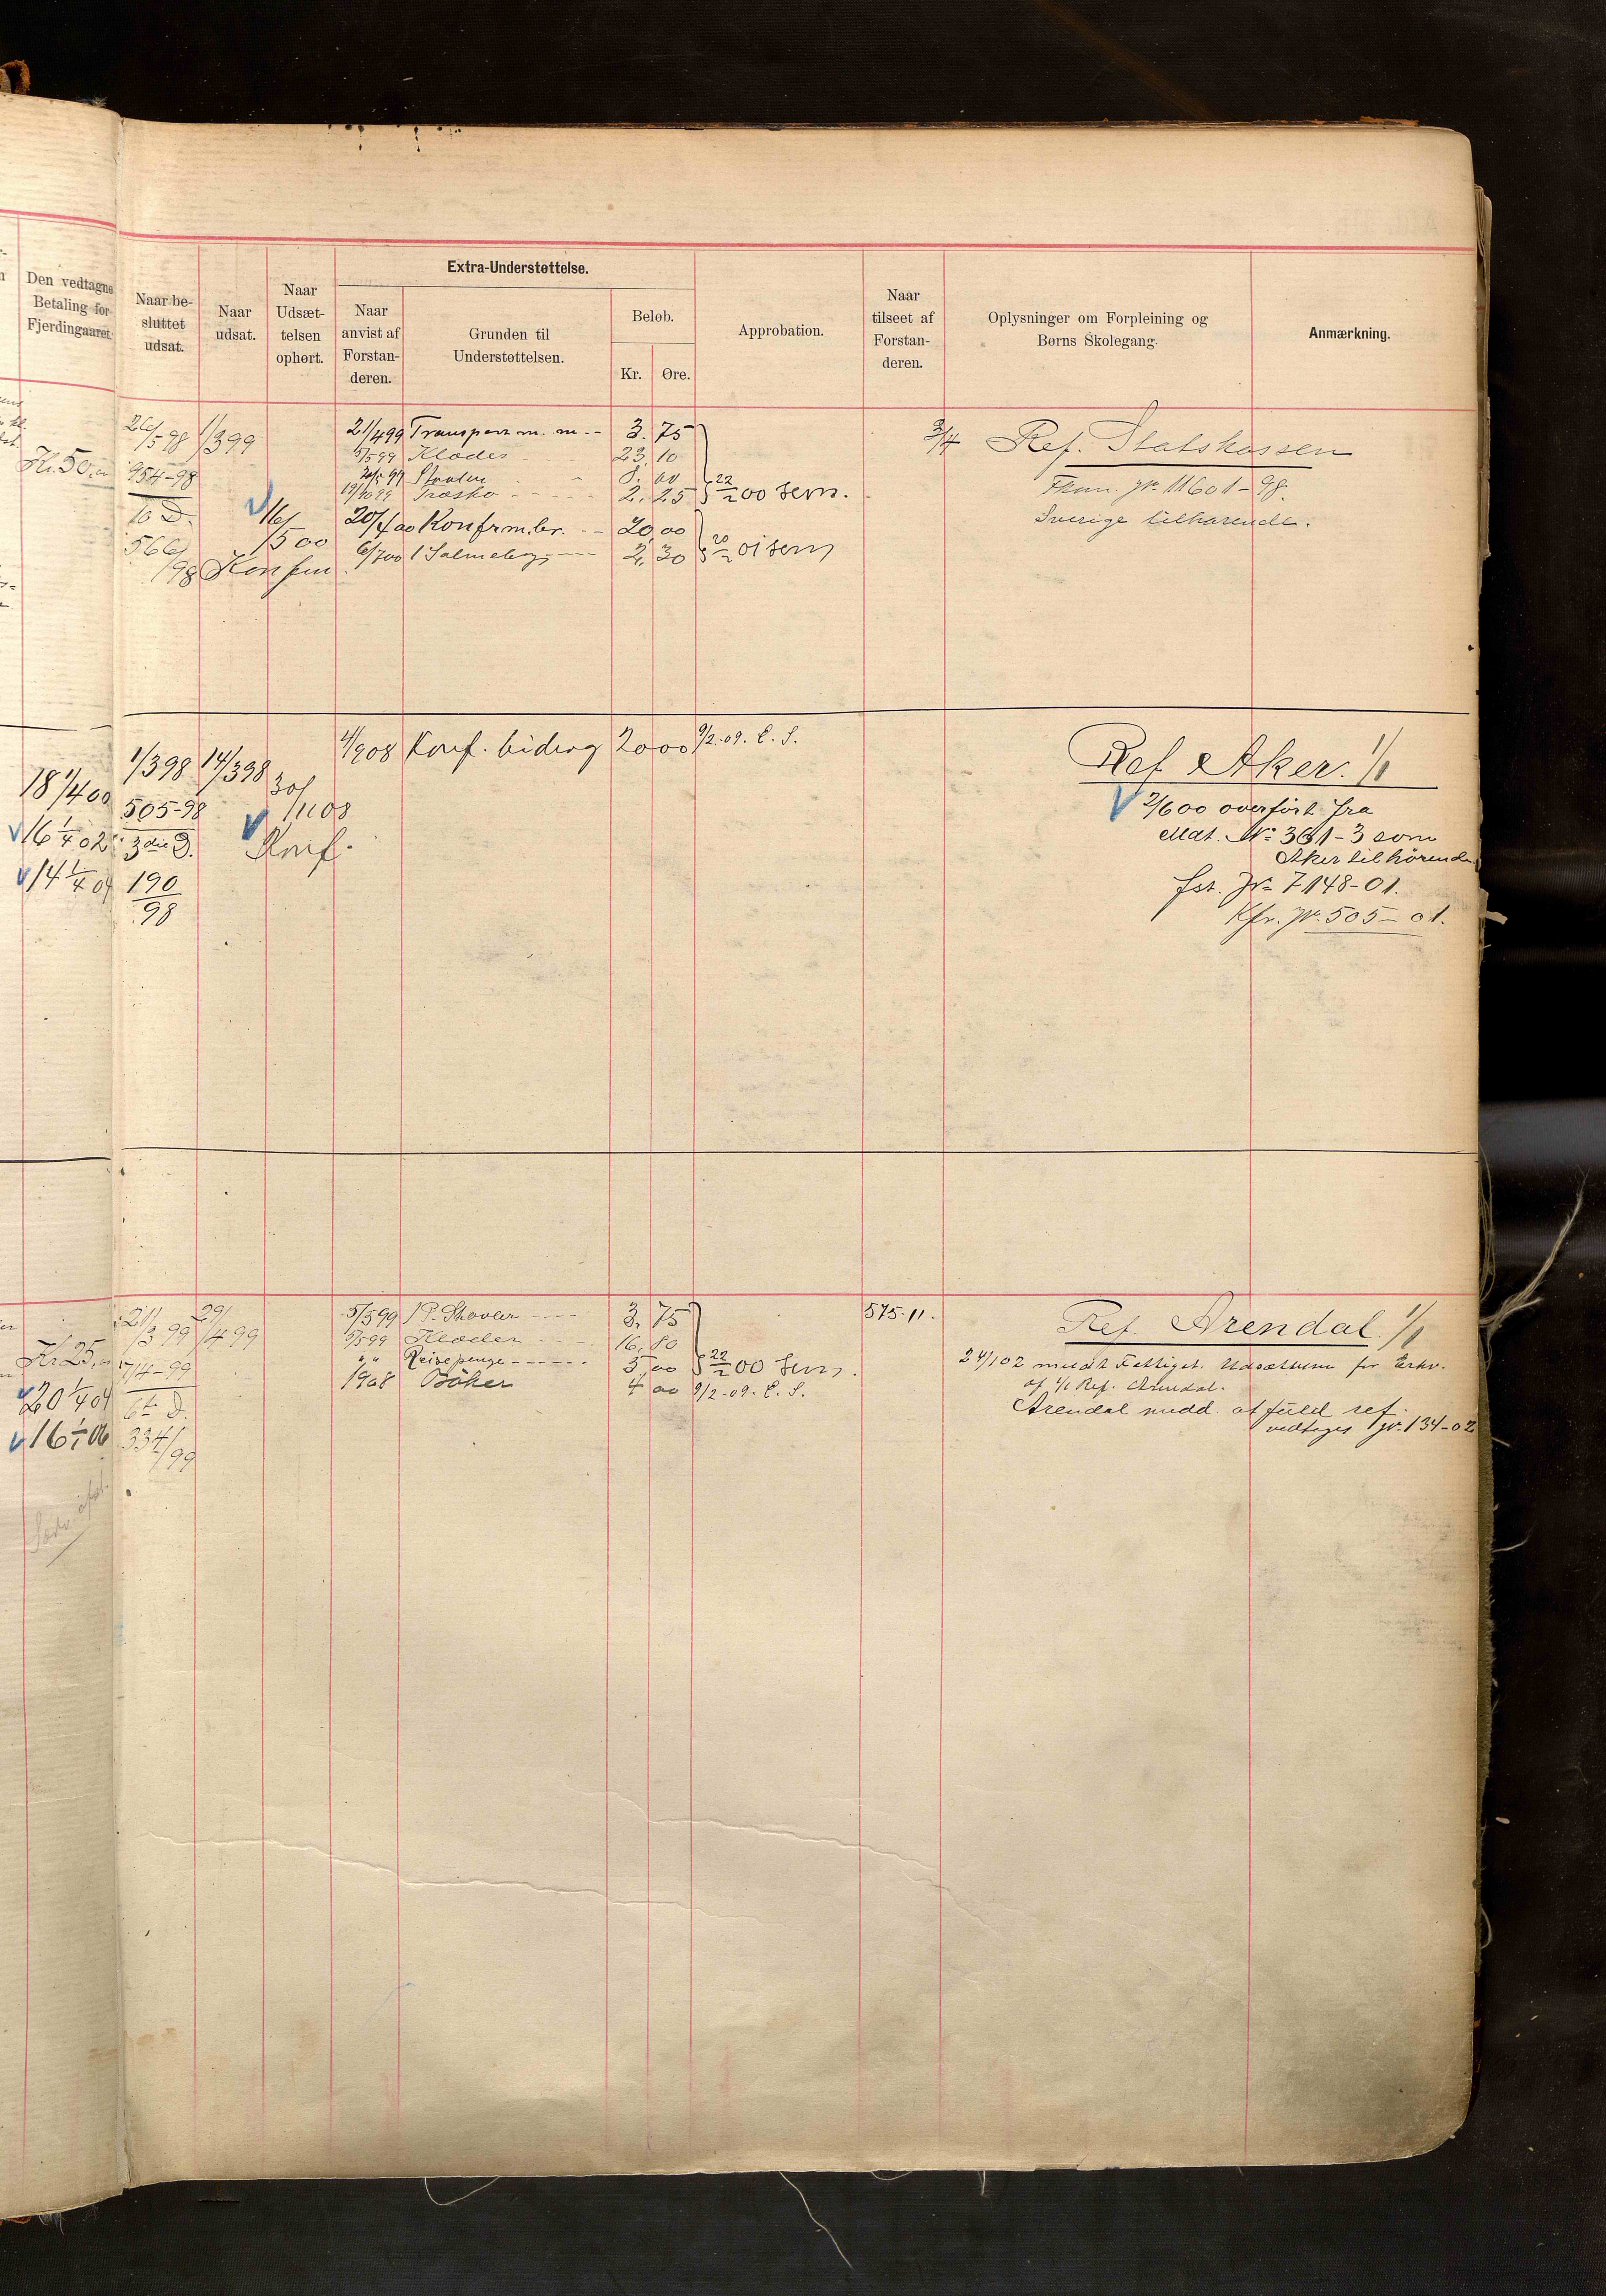 Extra-Understøttelse.
Den vedtagne
Betaling for
Fjerdingaaret.
Naar be-
sluttet
udsat.
Naar
udsat.
Naar
Udsæt-
telsen
ophørt.
Naar
anvist af
Forstan-
deren.
Grunden til
Understøttelsen.
Beløb.
Kr.
Øre.
Approbation.
Naar
tilseet af
Forstan-
deren.
Oplysninger om Forpleining og
Børns Skolegang.
Anmærkning.
Kr. 50
26/5 98 1/3 99
954-98
10 D.
566/98
16/5 00
Konfirm
21/4 99 Transport m. m. - 3. 75
5/5 99 Klæder 23. 10
8. 60
19/10 99 Træsko - - - 2. 25
22/2 00 Sem.
20/4 00 Konfirm.br. - - 20,00
6/7 00 1 Salmebog - - - 2. 30
20/2 01 Sem
3/4 Ref. Statskassen
Jr. 11601-98.
Sverige tilhørende.
18 1/4 00
16 1/4 02
14 1/4 04
1/3 98 14/3 98
505-98
3die D.
190
98
30/11 08
Konf.
4/9 08 Konf. bidrag 20 00 9/2-09. E. S.
Ref. Aker. 1/1
2/6 00 overført fra
Mat. No 361-3 som
Aker tilhörende
fst. Jr 7148-01.
Kfr. Jr. 505-01.
Kr. 25
20 1/4 04
21/3 99 29/4 99
714-99
6te D.
334/99
5/5 99 1 P. Skovler - - - 3. 75
5/5 99 Klæder - - - 16. 80
" " Reisepenge - - - - - 5 00
22/2 00 Sem.
1908 Böker 4 00 9/2-09. E. S.
575-11.
Ref. Arendal. 1/1
24/1 02 meldt Fattigst. Udsættelsen for
af 1/1 Ref. Arendal.
Arendal medd. at fuld ref.
vedtages Jr. 134-02